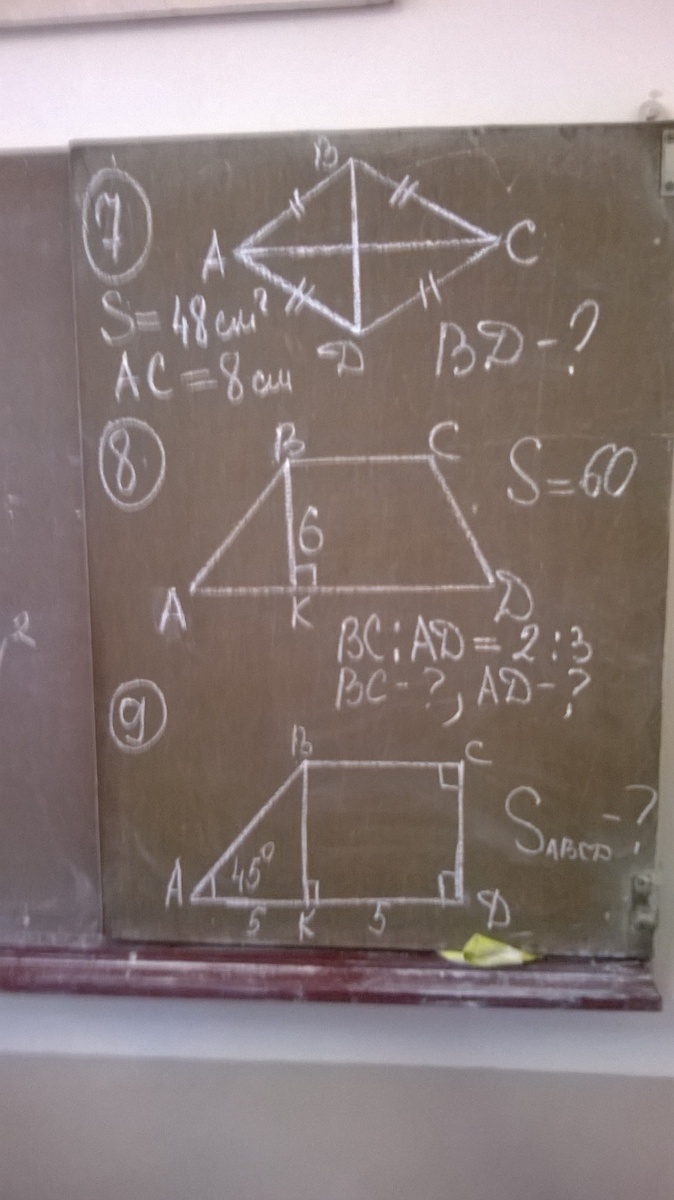 7
B
A
C
D
S = 48 см²
AC = 8 см
BD - ?
8
B
C
S = 60
6
A
K
D
BC : AD = 2 : 3
BC - ?, AD - ?
9
B
C
S ABCD - ?
A
45°
5
K
5
D
, 2